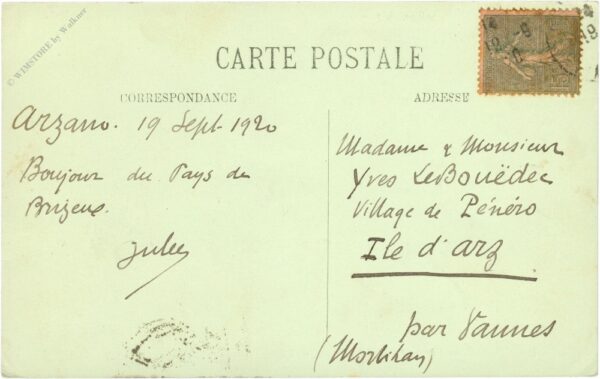 © WIMSTORE by Walkner
CARTE POSTALE
CORRESPONDANCE
ADRESSE
Arzano. 19 Sept. 1920
Bonjour du Pays de
Brizeux.
Jules
Madame & Monsieur
Yves Le Bouëdec
Village de Pénéro
Ile d'arz
par Vannes
(Morbihan)